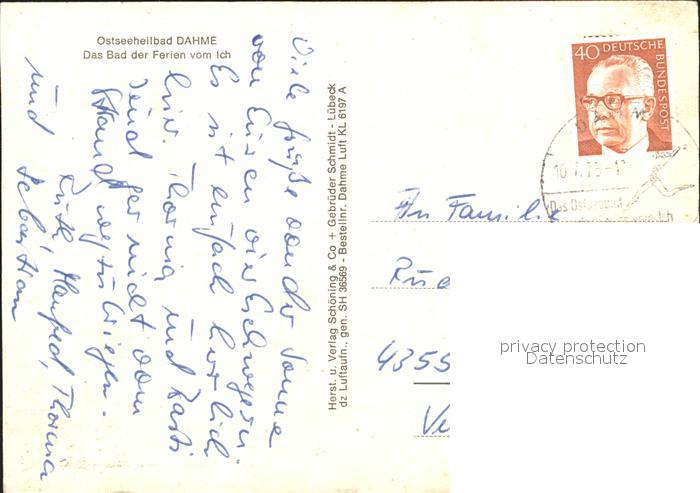 Ostseeheilbad DAHME
Das Bad der Ferien vom Ich
Viele Grüße von der Sonne
von Euren vier
Es ist einfach herrlich
hier. Thornia und Basti
sind gar nicht vom
Strand wegzukriegen.
Ruth, Manfred, Thornia
und Sebastian
Herst. u. Verlag Schöning & Co + Gebrüder Schmidt - Lübeck
dz Luftaufn., gen. SH 36569 - Bestellnr. Dahme Luft KL 6197 A
40 DEUTSCHE BUNDESPOST
Das Ostseebad
An Familie
Rud
4355
privacy protection
Datenschutz